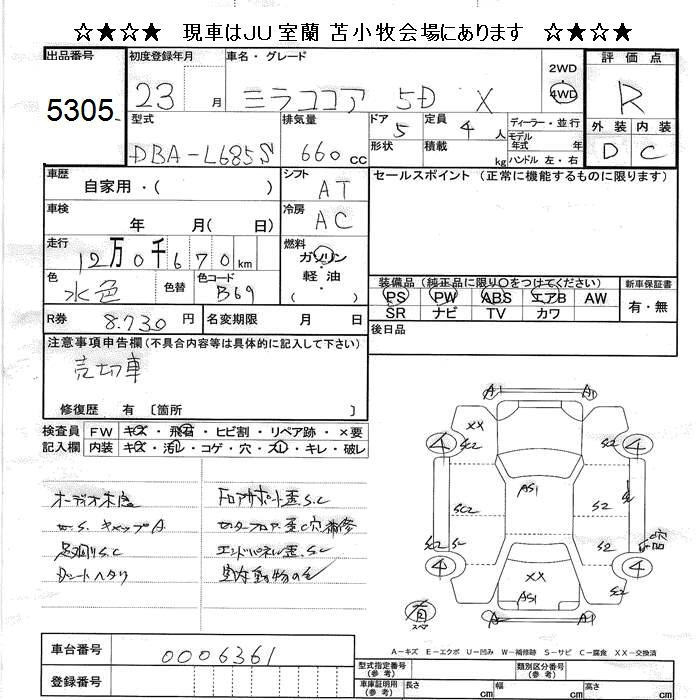 ☆★☆★ 現車はJU室蘭 苫小牧会場にあります ☆★☆★
出品番号 初度登録年月 車名・グレード 2WD 評価点
5305 23 月 ミラココア 5D X 4WD R
型式 排気量 ドア 定員 ディーラー・並行 外装 内装
DBA-L685S 660 CC 5 4 人 モデル 年式 年 D C
形状 積載 kg ハンドル 左・右
車歴 シフト セールスポイント(正常に機能するものに限ります)
自家用・( ) AT
車検 冷房
年 月( 日) AC
走行 燃料
12万0千670 km ガソリン
色 色替 色コード 軽・油
水色 B69 ( ・ )
装備品(純正品に限り○をつけてください) 新車保証書
PS PW ABS エアB AW 有・無
SR ナビ TV カワ
R券 8.730 円 名変期限 月 日 後日品
注意事項申告欄(不具合内容等は具体的に記入して下さい)
売切車
修復歴 有 〔箇所 〕
検査員 FW キズ・飛石・ヒビ割・リペア跡・×要
記入欄 内装 キズ・汚レ・コゲ・穴・スレ・キレ・破レ
A1 A1
XX S2 S2
4 4
AS1
SC2 S2 S
SC2 S S2
4 XX 4
AS1
有 スペア A A1
フロアサポート歪S.C
W.S. キャップA センターフロア歪C穴補修
足廻りS.C エンドパネル歪.S.C
シートヘタリ 室内動物の毛
A-キズ E-エクボ U-凹み W-補修跡 S-サビ C-腐食 XX-交換済
車台番号 0006361
登録番号
型式指定番号 (参考) 類別区分番号 (参考)
車庫証明用 (参考) 長さ cm 幅 cm 高さ cm